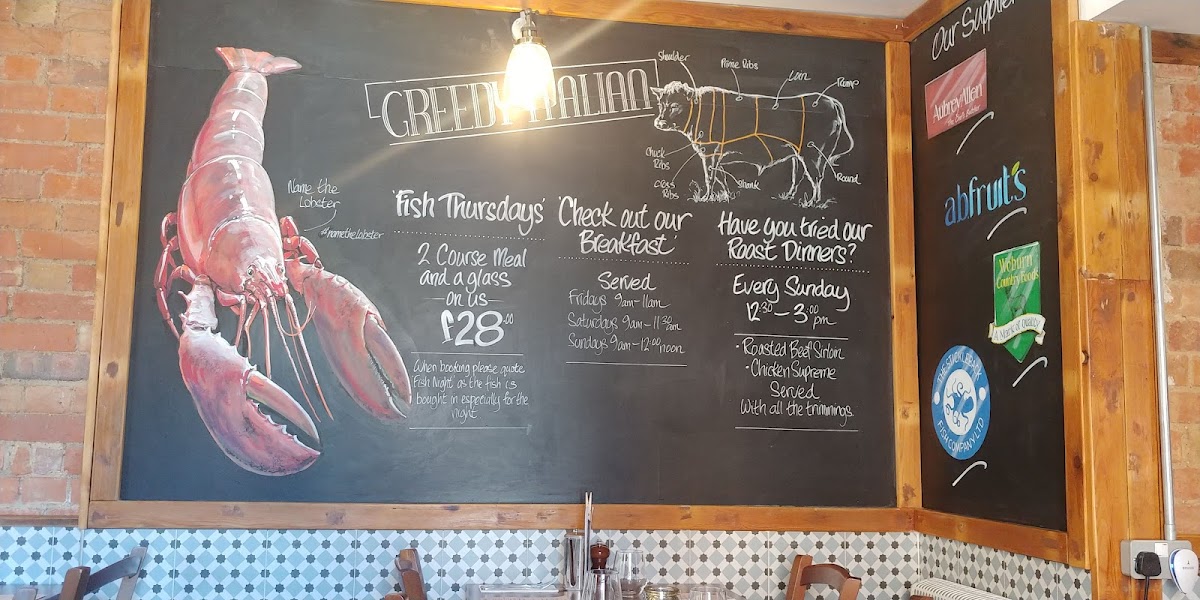 GREEDY ITALIAN
Shoulder
Prime Ribs
Loin
Rump
Chuck
Ribs
Ribs
Shank
Round
Name the
Lobster
#namethelobster
'Fish Thursdays'
2 Course Meal
and a glass
on us
£28.00
When booking please quote
Fish Night as the fish is
bought in especially for the
night
'Check out our
Breakfast'
Served
Fridays 9am-11am
Saturdays 9am-11:30am
Sundays 9am-12:00noon
Have you tried our
Roast Dinners?
Every Sunday
12:30 - 3:00pm
• Roasted Beef Sirloin
• Chicken Supreme
Served
With all the trimmings
Our Supplier
Aubrey Allen
abfruit's
Woburn
Country Foods
A Mark of Quality
FISH COMPANY LTD